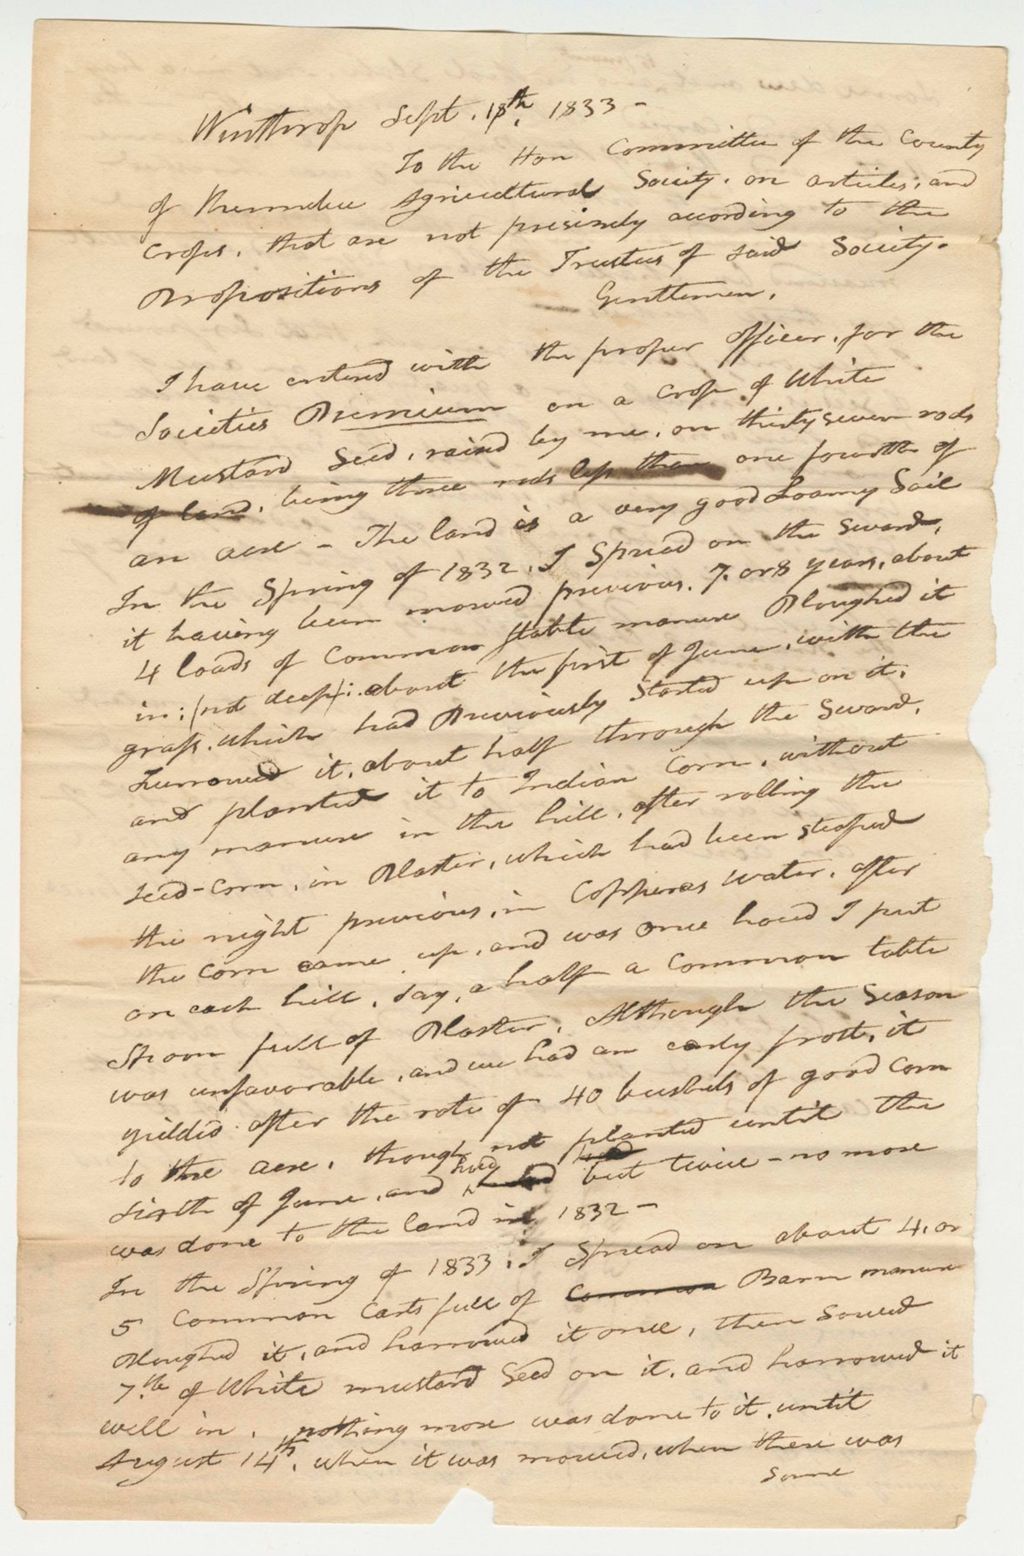 Winthrop Sept. 18th, 1833 -
To the Hon Committee of the County
of Kennebec Agricultural Society. on articles, and
crops, that are not presisely according to the
Propositions of the Trustees of said Society.
Gentlemen,
I have entered with the proper officer, for the
Societies Premium on a crop of White
Mustard Seed, raised by me, on thirty seven rods
of land, being three rods less than one fourth of
an acre - The land is a very good Loamy Soil
In the Spring of 1832, I Spread on the sward,
it having been mowed previous, 7. or 8 years, about
4 loads of Common stable manure Ploughed it
in; (not deep): about the first of June, with the
grass, which had Previously Started up on it,
Furrowed it, about half through the Sward,
and planted it to Indian Corn, without
any manure in the hill, after rolling the
seed-Corn, in Plaster, which had been steaped
the night previous, in Copperas water, after
the Corn came up, and was once hoed I put
on each hill, say, a half a Common table
Spoon full of Plaster, Although the Season
was unfavorable, and we had an early frost, it
yielded after the rate of 40 bushels of good Corn
to the acre, though not planted until the
sixth of June, and hoed but twice - no more
was done to the land in 1832 -
In the Spring of 1833, I Spread on about 4, or
5 Common Carts full of Common Barn manure
Ploughed it, and harrowed it once, then Sowed
7.lb of White mustard Seed on it, and harrowed it
well in, nothing more was done to it, until
August 14th, when it was mowed, when there was
some